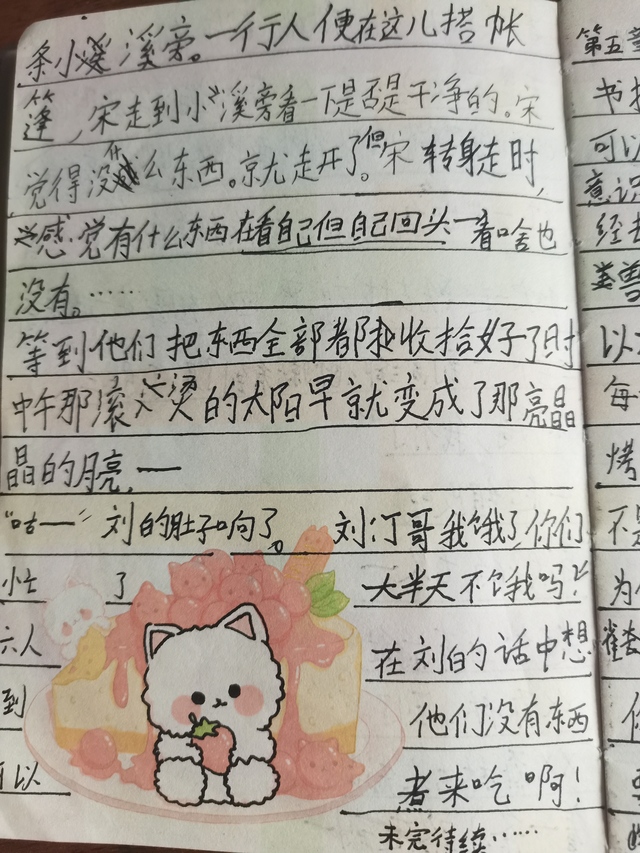 条小溪旁。一行人便在这儿搭帐
篷,宋走到小溪旁看一下是否是干净的。宋
觉得没什么东西。就走开了。但宋转身走时,
感觉有什么东西在看自己但自己回头一看啥也
没有。……
等到他们把东西全部都收拾好了时
中午那滚烫的太阳早就变成了那亮晶
晶的月亮,一
“咕一”刘的肚子响了。刘汀哥我饿了,你们
小忙 了 大半天不饿我吗?
六人 在刘的话中想
到 他们没有东西
可以 煮来吃啊!
未完待续……
第五章
书
可以
意识
经
以
每
烤
不是
为
你